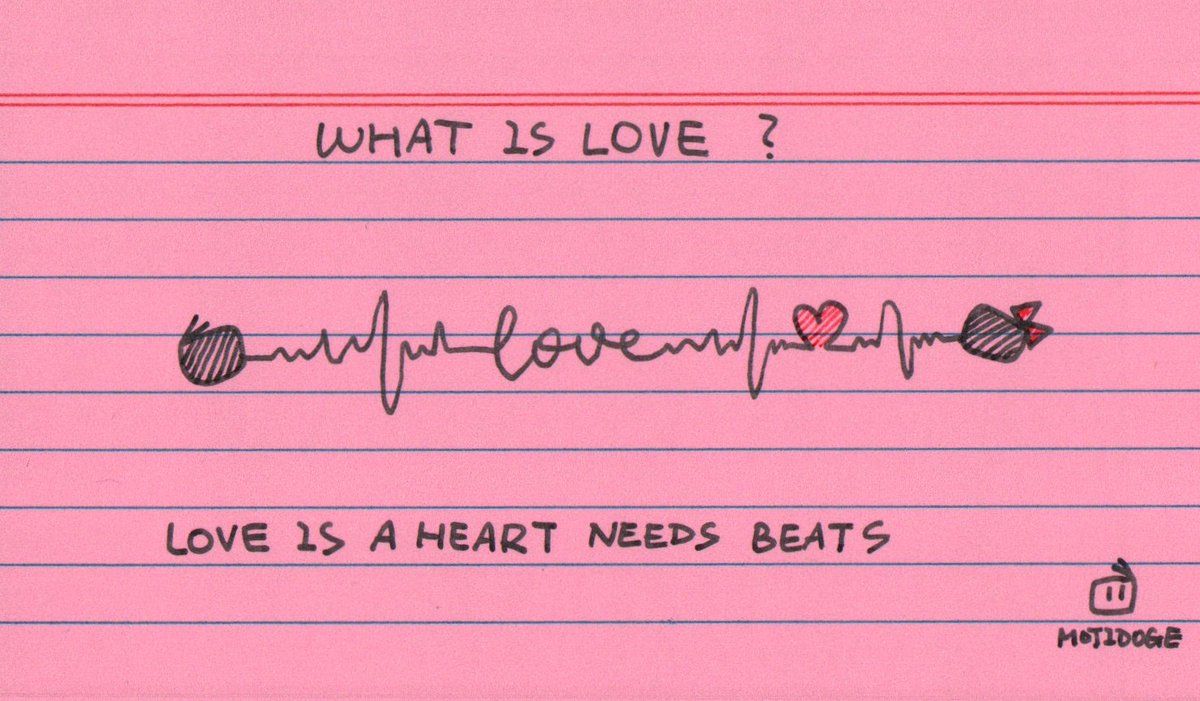 WHAT IS LOVE ?
love
LOVE IS A HEART NEEDS BEATS
MOTIDOGE